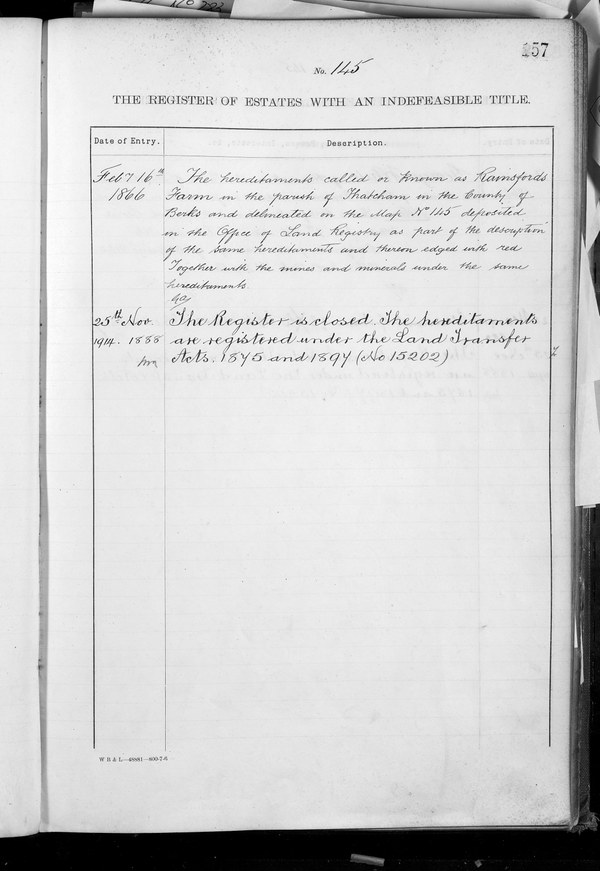 157
No. 145
THE REGISTER OF ESTATES WITH AN INDEFEASIBLE TITLE.
Date of Entry. Description.
Feby 16th 1866
The hereditaments called or known as Rainsfords
Farm in the parish of Thatcham in the County of
Berks and delineated on the Map No 145 deposited
in the Office of Land Registry as part of the description
of the same hereditaments and thereon edged with red
Together with the mines and minerals under the same
hereditaments
25th Nov. 1914. 1888
The Register is closed. The hereditaments
are registered under the Land Transfer
Acts. 1875 and 1897 (No 15202)
W B & L—49881—400-7-8